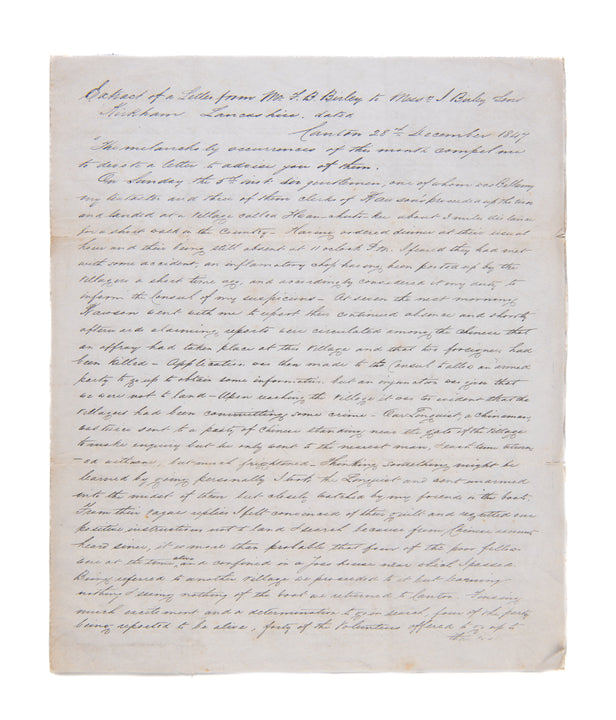 Extract of a Letter from Mr F. B. Birley to Messrs J Birley Sons
Kirkham Lancashire. dated
Canton 28th December 1847
"The melancholy occurrences of the month compel me
to devote a letter to advise you of them.
On Sunday the 5th inst six gentlemen, one of whom was Bellamy
my assistant and three of them clerks of Rawsons proceeded up the river
and landed at a village called about 3 miles distance
for a short walk in the Country – Having ordered dinner at their usual
hour and their being still absent at 11 o'clock P.M. I feared they had met
with some accident, an inflamatory chop having been posted up by the
villagers a short time ago, and accordingly considered it my duty to
inform the Consul of my suspicions – At seven the next morning
Rawson went with me to report their continued absence and shortly
afterwards alarming reports were circulated among the Chinese that
an affray had taken place at this Village and that two foreigners had
been killed – Application was then made to the Consul to allow an armed
party to go up to obtain some information but an injunction was given that
we were not to land – Upon reaching the Village it was to evident that the
Villagers had been committing some crime – Our Linguist, a Chinaman,
was twice sent to a party of Chinese standing near the gate of the Village
to make enquiry but he only went to the nearest man, & each time return
-ed with , but much frightened – Thinking something might be
learned by going personally I took the Linguist and went unarmed
into the midst of them but closely watched by my friends in the boat.
From their replies I felt convinced of their guilt and regretted our
positive instructions not to land & search because from Chinese account
heard since, it is more than probable that four of the poor fellows
were at the time alive, and confined in a Joss house near which I passed
Being referred to another village we proceeded to it but learning
nothing & seeing nothing of the boat we returned to Canton. There was
much excitement and a determination to go in search, four of the party
being reported to be alive, forty of the Volunteers offered to go up to